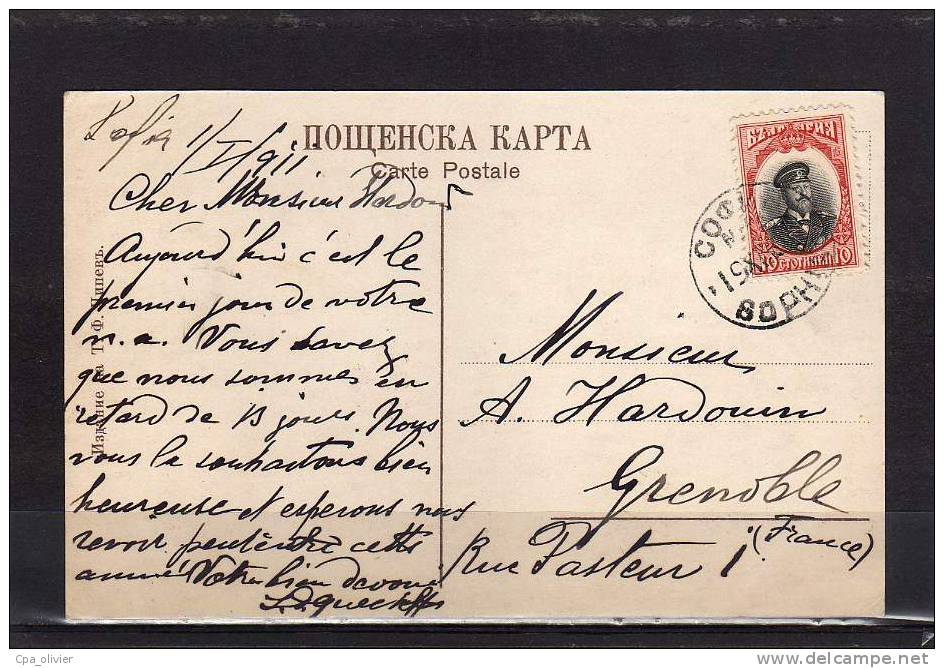 Sofia 1/I/911.
ПОЩЕНСКА КАРТА
Carte Postale
Cher Monsieur Hardouin
Aujourd'hui c'est le
premier jour de votre
n.a. Vous savez
que nous sommes en
retard de 13 jours. Nous
vous la souhaitons bien
heureuse et esperons vous
revoir peutêtre cette
année. Votre bien dévoué
Издание на Т. Ф. Чипевъ.
БЪЛГАРИЯ
10 СТОТИНКИ 10
СОФИЯ
Monsieur
A. Hardouin
Grenoble
(France)
Rue Pasteur 1
Cpa_olivier
www.delcampe.net